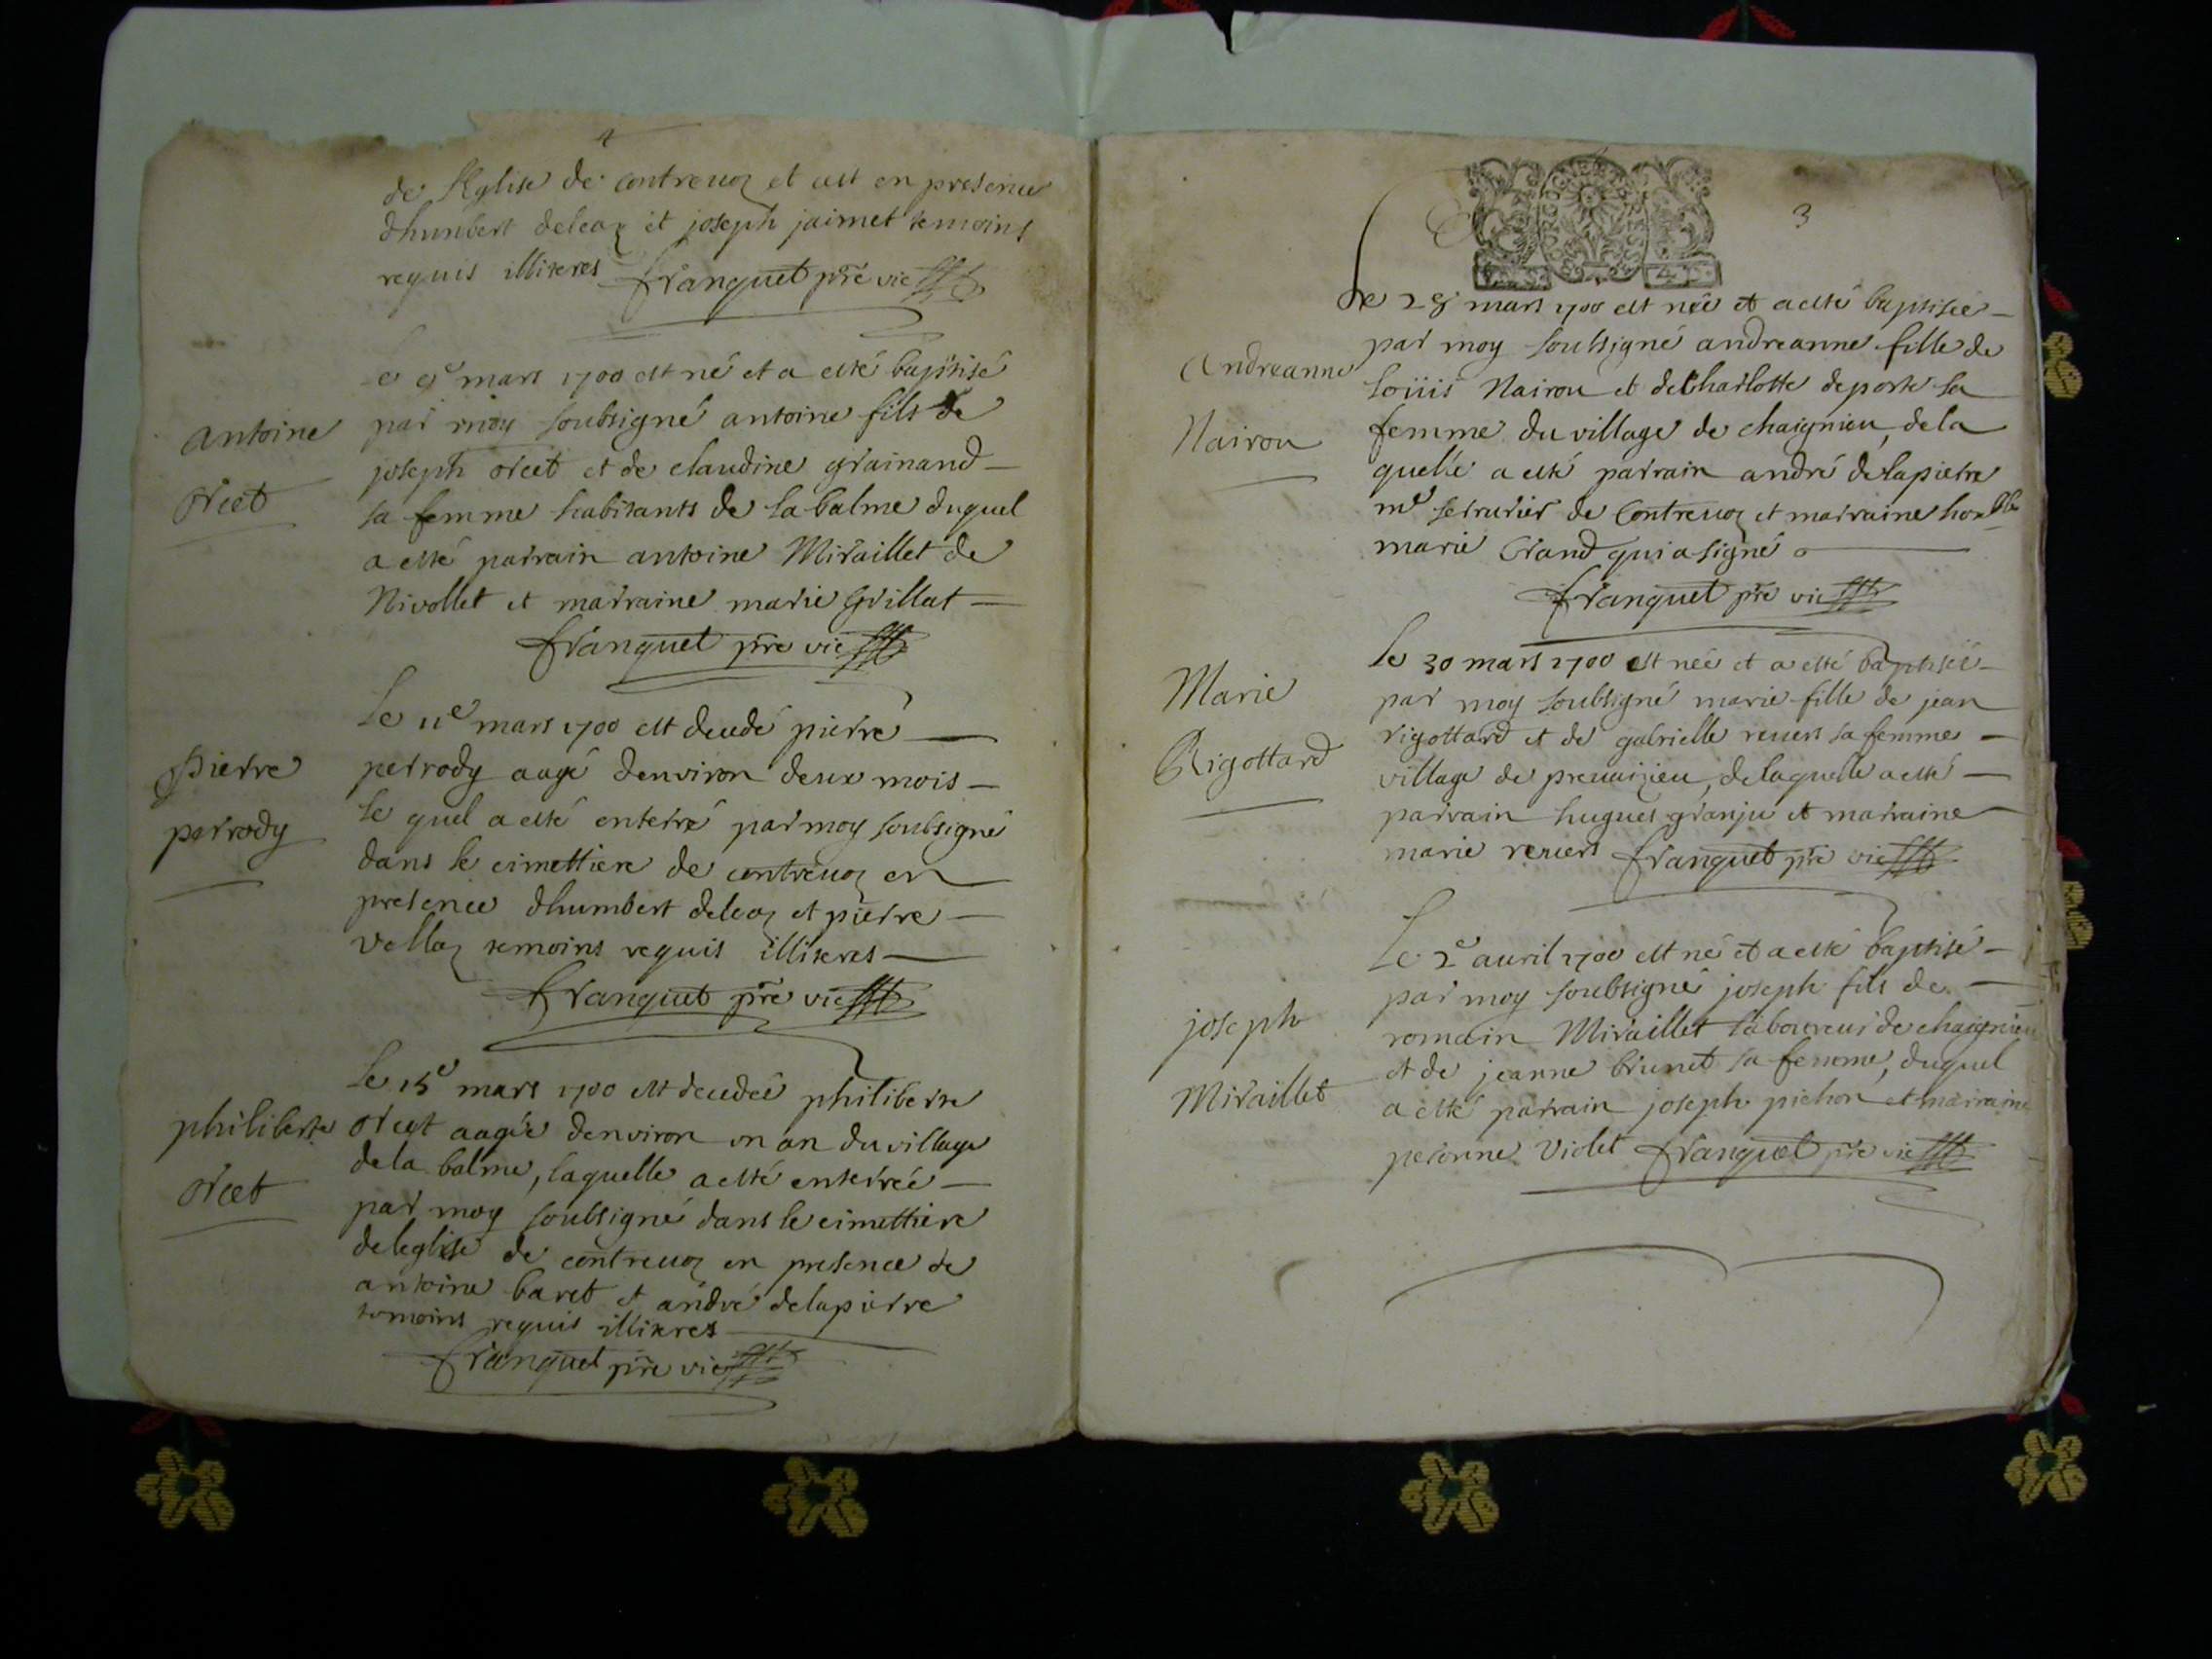 de l'Eglise de contreuoz et cest en presence
dhumbert deleaz et joseph jaimet temoins
requis illiteres franquet pre vic
mars 1700 est né et a esté baptisé
par moy soubsigné antoine fils de
antoine
joseph orcet et de claudine grainand
orcet
sa femme habitants de la balme duquel
a esté parrain antoine Miraillet de
Nivollet et marraine marie Grillat
franquet pre vic
Le 11e mars 1700 est decedé pierre
pierre
perrody aagé denviron deux mois
perrody
le quel a esté enterré par moy soubsigné
dans le cimettiere de contreuoz en
presence dhumbert deleaz et pierre
Vellaz temoins requis illiteres
franquet pre vic
Le 15e mars 1700 est decedée philiberte
philiberte
orcet aagée denviron vn an du village
de la balme, laquelle a esté enterrée
orcet
par moy soubsigné dans le cimettiere
de leglise de contreuoz en presence de
antoine baret et andré delapierre
temoins requis illiteres
franquet pre vic
3
Le 28 mars 1700 est née et a esté baptisée
par moy soubsigné andreanne fille de
Andreanne
Loüis Nairou et de Charlotte deporte sa
Nairou
femme du village de chaignieu, de la
quelle a esté parrain andré delapierre
me serrurier de Contreuoz et marraine honble
marie Crand qui a signé
franquet pre vic
Le 30 mars 1700 est née et a esté baptisée
Marie
par moy soubsigné marie fille de jean
Rigottard
rigottard et de gabrielle reuers sa femme
village de preuaizieu, de laquelle a esté
parrain hugues granju et marraine
marie reuers franquet pre vic
Le 2e auril 1700 est né et a esté baptisé
par moy soubsigné joseph fils de
joseph
romain Miraillet laboureur de chaignieu
Miraillet
et de jeanne brunet sa femme, duquel
a esté parrain joseph pichon et marraine
peronne Violet franquet pre vic